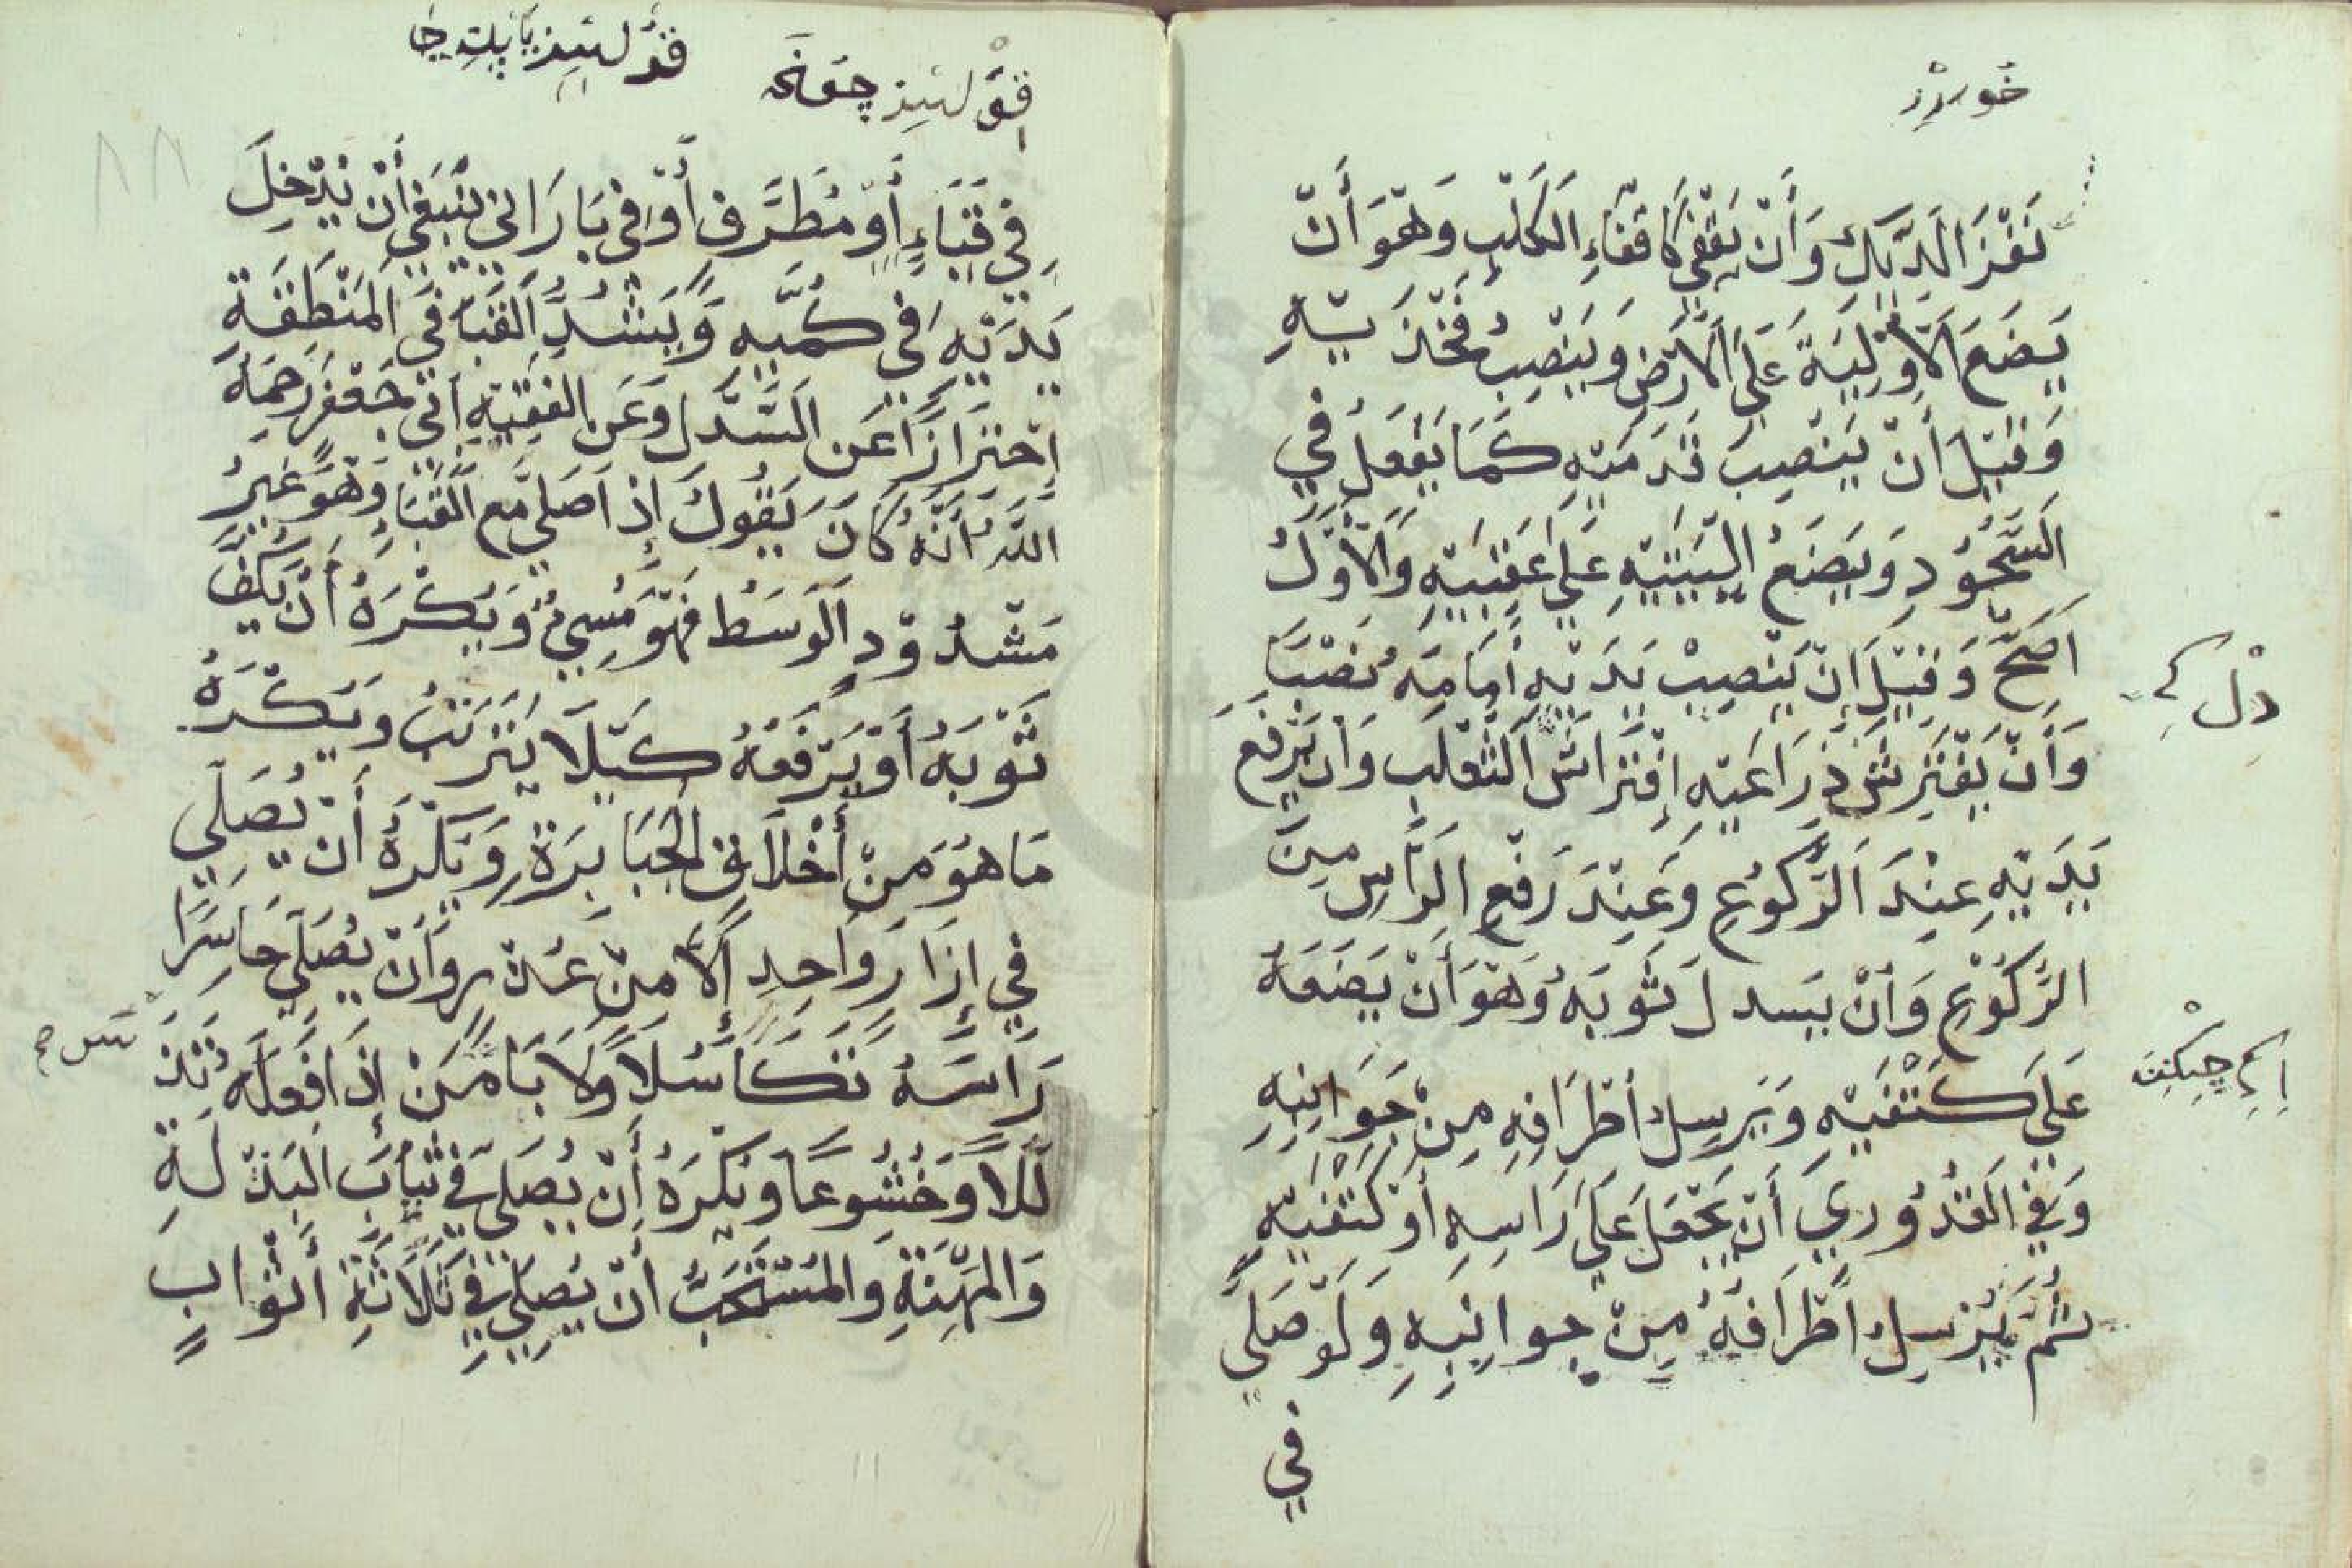 خوسرز
نَقْرَ الدِّيكِ وَأَنْ يُقْعِيَ كَاقْعَاءِ الْكَلْبِ وَهُوَ أَنْ
يَضَعَ الْاَوْلِيَةَ عَلَى الْاَرْضِ وَيَنْصِبُ فَخْذَيْهِ
وَقِيلَ أَنْ يَنْصِبَ قَدَمَيْهِ كَمَا يَفْعَلُ فِي
السُّجُودِ وَيَضَعُ اليَيْتَيْهِ عَلَى عَقِبَيْهِ وَالْاَوَّلُ
اَصَحُّ وَقِيلَ اِنْ يَنْصِبْ يَدَيْهِ أَمَامَهُ نَصْبًا
دل كى
وَأَنْ يَفْتَرِشَ ذِرَاعَيْهِ اِفْتِرَاشَ الثَّعْلَبِ وَاَنْ يَرْفَعَ
يَدَيْهِ عِنْدَ الرُّكُوعِ وَعِنْدَ رَفْعِ الرَّاْسِ مِنَ
الرُّكُوعِ وَأَنْ يَسدلَ ثَوْبَهُ وَهُوَ أَنْ يَضَعَهُ
عَلَى كَتْفَيْهِ وَيُرسِلُ أَطْرَافِهِ مِنْ جَوَانِبِهِ
وَفِي الْقُدُورِيِّ أَنْ يَجْعَلَ عَلَى رَاَسِهِ أَوْ كَتْفَيْهِ
ثُمَّ يُرْسِلُ اَطْرَافَهُ مِنْ جوانِبِهِ وَلَوْ صَلَّى
فِي
فِي قَبَاءٍ أَوْ مُطَرَّفٍ أَوْ فِى بَارَانِي يَنْبَغِي أَنْ يُدْخِلَ
يَدَيْهِ فِى كُمَّيْهِ وَيَشُدُّ الْقَبَا فِي الْمَنْطِقَةِ
اِحْتِرَازًا عَنِ السَّدلِ وَعَنِ الفَقِيْهِ اَبِى جَعْفَرَ رَحِمَهُ
اللّٰهُ أَنَّهُ كَانَ يَقُولُ إِذَا صَلَّى مَعَ الْقَبَاءِ وَهُوَ غَيْرُ
مَشْدُوْدِ الْوَسَطِ فَهُوَ مُسِىءٌ وَيُكْرَهُ أَنْ يَكُفَّ
ثَوْبَهُ أَوْ يَرْفَعَهُ كَيْلَا يَتَرَبَّ وَيُكْرَهُ
مَا هُوَ مِنْ أَخْلَاقِ الْجَبَابِرَةِ وَيُكْرَهُ أَنْ يُصَلِّي
فِي إِزَارٍ وَاحِدٍ إِلَّا مِنْ عُذْرٍ وَأَنْ يُصَلِّي حَاسِرًا
رَاْسَهُ تَكَاسُلًا وَلَا بَاْسَ مَنْ إِذَا فَعَلَهُ تَذَ
لُّلًا وَخُشُوعًا وَيُكْرَهُ أَنْ يُصَلِّىَ فِي ثِيَابِ الْبَذْلَةِ
وَالْمِهْنَةِ وَالْمُسْتَحَبُّ أَنْ يُصَلِّي فِي ثَلَاثَةِ أَثْوَابٍ